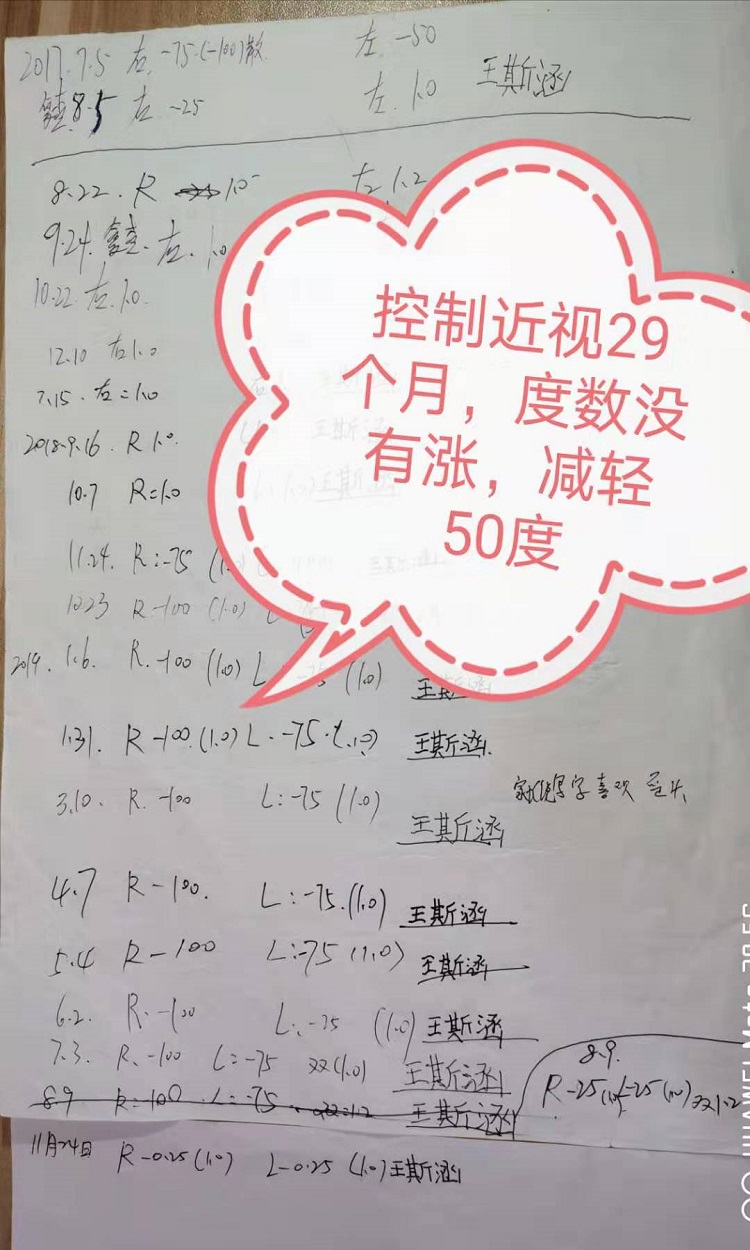 2017.7.5 右.-75.(-100)散 左.-50
8.5 右 -25 左.1.0 王斯涵
8.22. R 1.0 左1.2
9.24. 右.1.0
10.22 右.1.0.
12.10 右1.0
7.15. 右=1.0
2018.9.16. R 1.0.
10.7 R=1.0
11.24. R:-75 (1.0)
R-100 (1.0) L
2019. 1.6. R.-100 (1.0) L -75 (1.0) 王斯涵
1.31. R-100.(1.0) L.-75.(1.0) 王斯涵
3.10. R.-100 L:-75 (1.0) 王斯涵
写字喜欢
4.7 R-100. L:-75.(1.0) 王斯涵
5.4 R-100 L:-75 (1.0) 王斯涵
6.2. R.-100 L:-75 (1.0) 王斯涵
7.3. R.-100 L=-75 双(1.0) 王斯涵
8.9 R=100 L:-75. 双=1.2 王斯涵
8.9.
R-25(1.0)L-25(1.0)双1.2
11月24日 R-0.25(1.0) L-0.25 (1.0)王斯涵
控制近视29
个月，度数没
有涨，减轻
50度